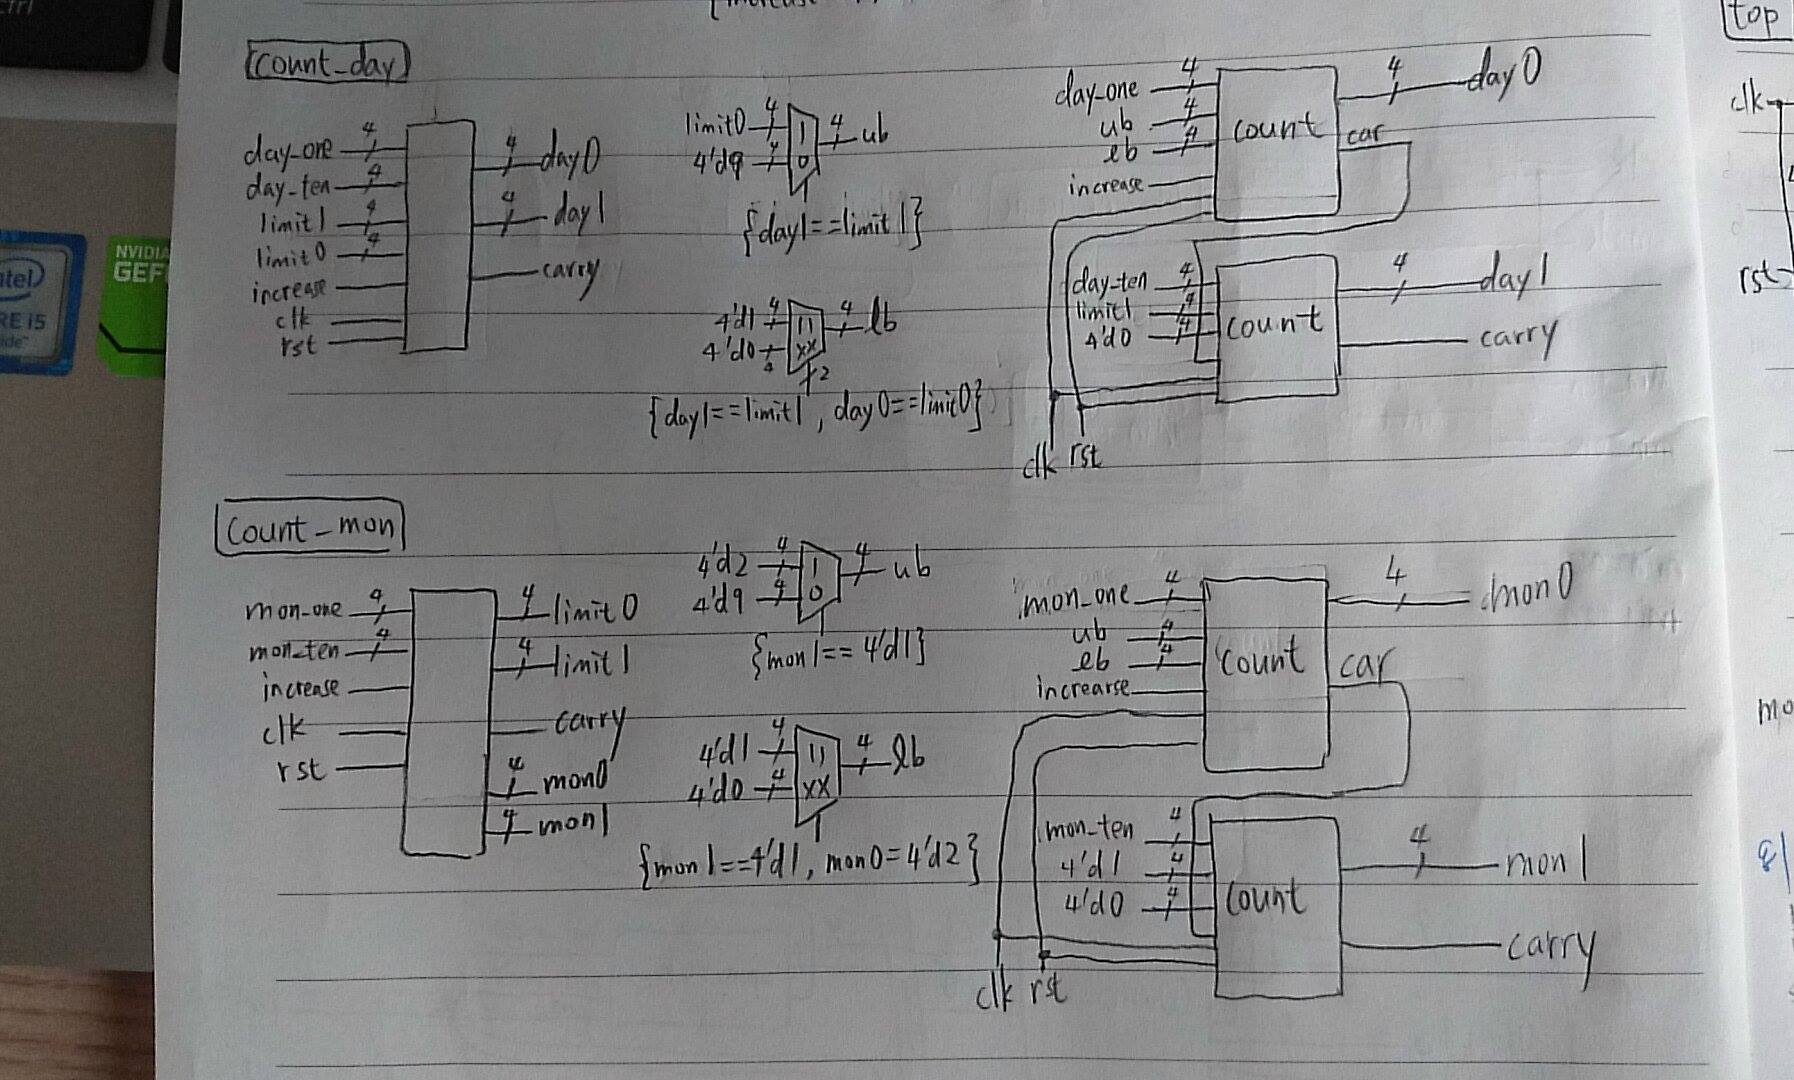 count_day
day_one 4
day_ten 4
limit1 4
limit0 4
increase
clk
rst
4 day0
4 day1
carry
limit0 4
4'd9 4
1
0
4 ub
{day1==limit1}
4'd1 4
4'd0 4
11
xx
4 lb
2
{day1==limit1, day0==limit0}
day_one 4
ub 4
lb 4
increase
count
car
4 day0
day_ten 4
limit1 4
4'd0 4
count
4 day1
carry
clk rst
count_mon
mon_one 4
mon_ten 4
increase
clk
rst
4 limit0
4 limit1
carry
4 mon0
4 mon1
4'd2 4
4'd9 4
1
0
4 ub
{mon1==4'd1}
4'd1 4
4'd0 4
11
xx
4 lb
{mon1==4'd1, mon0=4'd2}
mon_one 4
ub 4
lb 4
increarse
count
car
4 mon0
mon_ten 4
4'd1 4
4'd0 4
count
4 mon1
carry
clk rst
top
clk
rst
NVIDIA